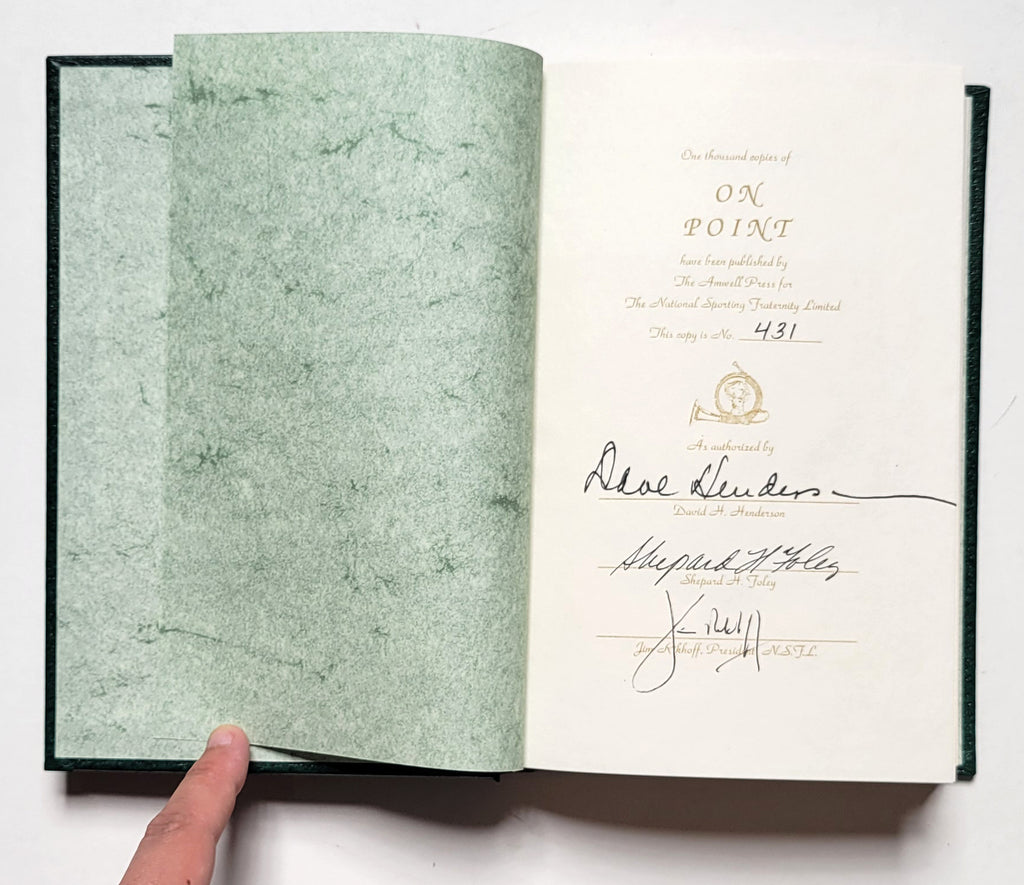 One thousand copies of
ON
POINT
have been published by
The Amwell Press for
The National Sporting Fraternity Limited
This copy is No. 431
As authorized by
Dave Henderson
David H. Henderson
Shepard H Foley
Shepard H. Foley
Jim, President N.S.F.L.